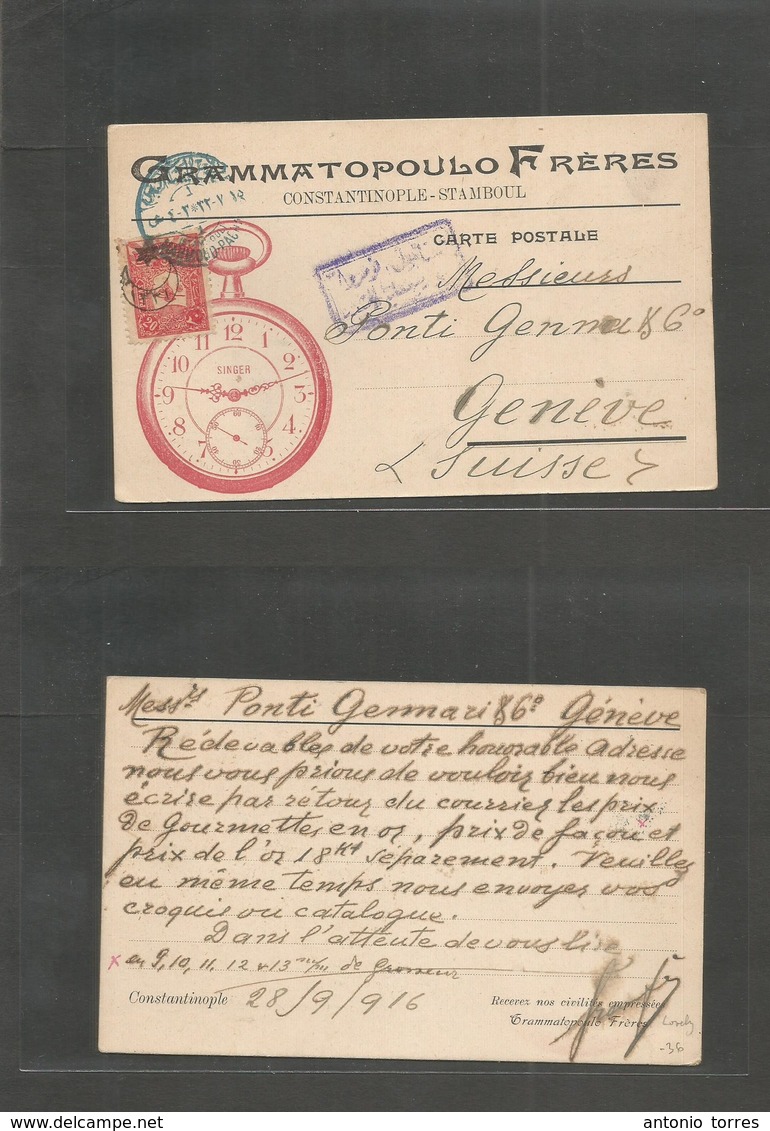 GRAMMATOPOULO FRÈRES
CONSTANTINOPLE-STAMBOUL
CARTE POSTALE
Messieurs
Ponti Gennari & Cº
Genève
(Suisse)
SINGER
12
11 1
10 2
9 3
8 4
7 5
20
Messrs Ponti Gennari & Cº Génève
Rédevables de votre honorable adresse
nous vous prions de vouloir bien nous
écrire par rétour du courrier les prix
de Gourmettes en or, x prix de façon et
prix de l'or 18 Kt séparement. Veuillez
en même temps nous envoyer vos
croquis ou catalogue.
Dans l'attente de vous lire
x en 9, 10, 11, 12 & 13 m/m de Grosseur
Constantinople 28/9/916
Recevez nos civilités empressées
Grammatopoulo Frères
Lovely
-36
antonio torres